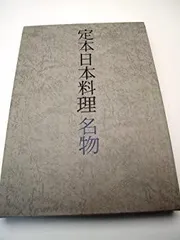 定本日本料理 名物